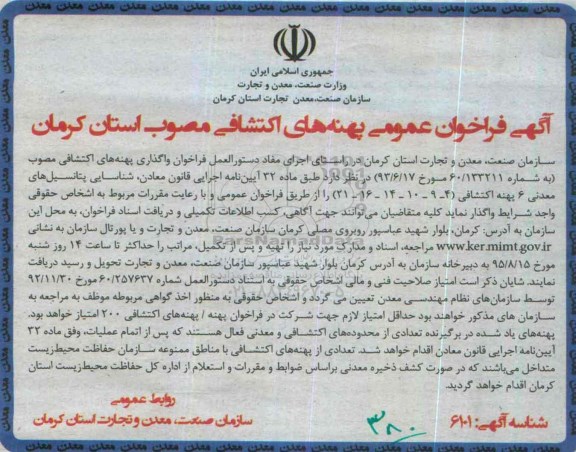 جمهوری اسلامی ایران
وزارت صنعت، معدن و تجارت
سازمان صنعت، معدن تجارت استان کرمان
آگهی فراخوان عمومی پهنه‌های اکتشافی مصوب استان کرمان
سازمان صنعت، معدن و تجارت استان کرمان در راستای اجرای مفاد دستورالعمل فراخوان واگذاری پهنه‌های اکتشافی مصوب
(به شماره ۶۰/۱۳۲۲۱۱ مورخ ۹۳/۶/۱۷) در نظر دارد طبق ماده ۳۲ آیین‌نامه اجرایی قانون معادن، شناسایی پتانسیل‌های
معدنی ۶ پهنه اکتشافی (۴- ۹ - ۱۰ - ۱۴ - ۱۶ - ۲۱) را از طریق فراخوان عمومی و با رعایت مقررات مربوط به اشخاص حقوقی
واجد شرایط واگذار نماید کلیه متقاضیان می‌توانند جهت آگاهی، کسب اطلاعات تکمیلی و دریافت اسناد فراخوان، به محل این
سازمان به آدرس: کرمان، بلوار شهید عباسپور روبروی مصلی کرمان سازمان صنعت، معدن و تجارت و یا پورتال سازمان به نشانی
www.ker.mimt.gov.ir مراجعه، اسناد و مدارک مورد نیاز را تهیه و پس از تکمیل، مراتب را حداکثر تا ساعت ۱۴ روز شنبه
مورخ ۹۵/۸/۱۵ به دبیرخانه سازمان به آدرس کرمان بلوار شهید عباسپور سازمان صنعت، معدن و تجارت تحویل و رسید دریافت
نمایند. شایان ذکر است امتیاز صلاحیت فنی و مالی اشخاص حقوقی به استناد دستورالعمل شماره ۶۰/۲۵۷۶۳۷ مورخ ۹۲/۱۱/۳۰
توسط سازمان‌های نظام مهندسی معدن تعیین می گردد و اشخاص حقوقی به منظور اخذ گواهی مربوطه موظف به مراجعه به
سازمان های مذکور خواهند بود حداقل امتیاز لازم جهت شرکت در فراخوان پهنه / پهنه‌های اکتشافی ۲۰۰ امتیاز خواهد بود.
پهنه‌های یاد شده در برگیرنده تعدادی از محدوده‌های اکتشافی و معدنی فعال هستند که پس از اتمام عملیات، وفق ماده ۳۲
آیین‌نامه اجرایی قانون معادن اقدام خواهد شد. تعدادی از پهنه‌های اکتشافی با مناطق ممنوعه سازمان حفاظت محیط‌زیست
متداخل می‌باشند که در صورت کشف ذخیره معدنی براساس ضوابط و مقررات و استعلام از اداره کل حفاظت محیط‌زیست استان
کرمان اقدام خواهد گردید.
روابط عمومی
سازمان صنعت، معدن و تجارت استان کرمان
شناسه آگهی: ۶۱۰۱
۳۸۰